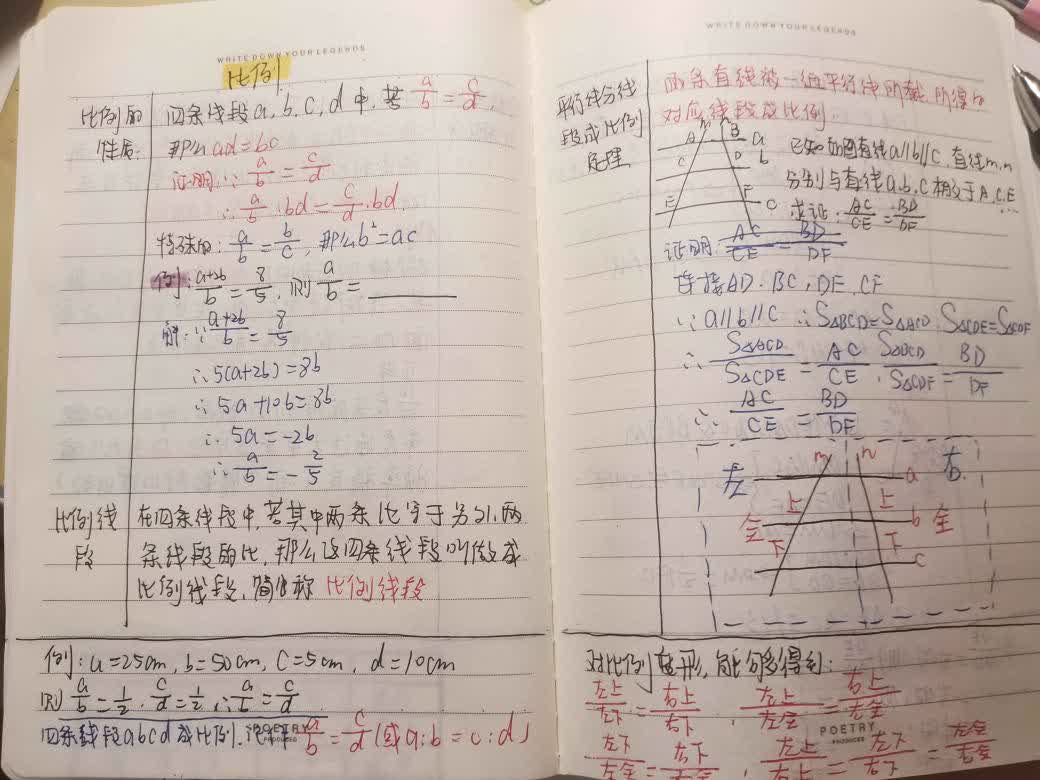 WRITE DOWN YOUR LEGENDS
比例
比例的
性质:
四条线段a,b,c,d中,若a/b=c/d,
那么ad=bc
证明:∵a/b=c/d
∴a/b·bd=c/d·bd
特殊的:a/b=b/c,那么b²=ac
例:a+2b/b=8/5,则a/b=______
解:∵a+2b/b=8/5
∴5(a+2b)=8b
∴5a+10b=8b
∴5a=-2b
∴a/b=-2/5
比例线
段
在四条线段中,若其中两条比等于另外两
条线段的比,那么这四条线段叫做成
比例线段,简称 比例线段
例:a=25cm,b=50cm,c=5cm,d=10cm
则a/b=1/2,c/d=1/2,∴a/b=c/d
四条线段abcd成比例,a/b=c/d(或a:b=c:d)
POETRY
PRODUCED
WRITE DOWN YOUR LEGENDS
平行线分线
段成比例
定理
两条直线被一组平行线所截,所得的
对应线段成比例
m n
A B a
C D b
E F c
已知如图直线a//b//c,直线m,n
分别与直线a,b,c相交于A,C,E…
求证:AC/CE=BD/DF
证明:AC/CE=BD/DF
连接AD,BC,DE,CF
∵a//b//c ∴S△BCD=S△ACD,S△CDE=S△CDF
∴S△ACD/S△CDE=AC/CE,S△BCD/S△CDF=BD/DF
∴AC/CE=BD/DF
m n
左 a 右
上 上
全 b 全
下 下
c
对比例变形,能够得到:
左上/左下=右上/右下,左上/左全=右上/右全
左下/左全=右下/右全,左上/右上=左下/右下=左全/右全
POETRY
PRODUCED